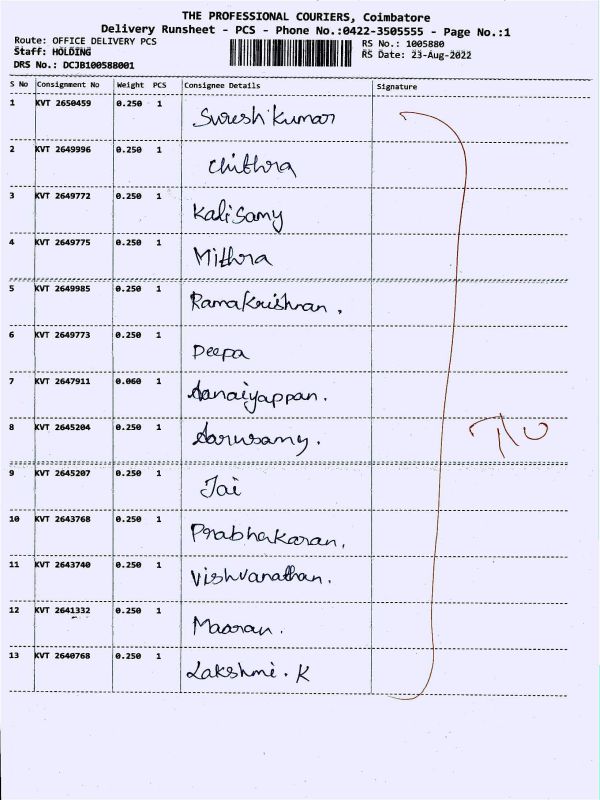 THE PROFESSIONAL COURIERS, Coimbatore
Delivery Runsheet - PCS - Phone No.:0422-3505555 - Page No.:1
Route: OFFICE DELIVERY PCS
RS No.: 1005880
Staff: HOLDING
RS Date: 23-Aug-2022
DRS No.: DCJB100588001
S No Consignment No Weight PCS Consignee Details Signature
1 KVT 2650459 0.250 1 Suresh Kumar
2 KVT 2649996 0.250 1 Chithra
3 KVT 2649772 0.250 1 Kalisamy
4 KVT 2649775 0.250 1 Mithra
5 KVT 2649985 0.250 1 Ramakrishnan.
6 KVT 2649773 0.250 1 Deepa
7 KVT 2647911 0.060 1 Aanaiyappan.
8 KVT 2645204 0.250 1 Aarusamy.
9 KVT 2645207 0.250 1 Jai
10 KVT 2643768 0.250 1 Prabhakaran.
11 KVT 2643740 0.250 1 Vishvanathan.
12 KVT 2641332 0.250 1 Maaran.
13 KVT 2640768 0.250 1 Lakshmi. K